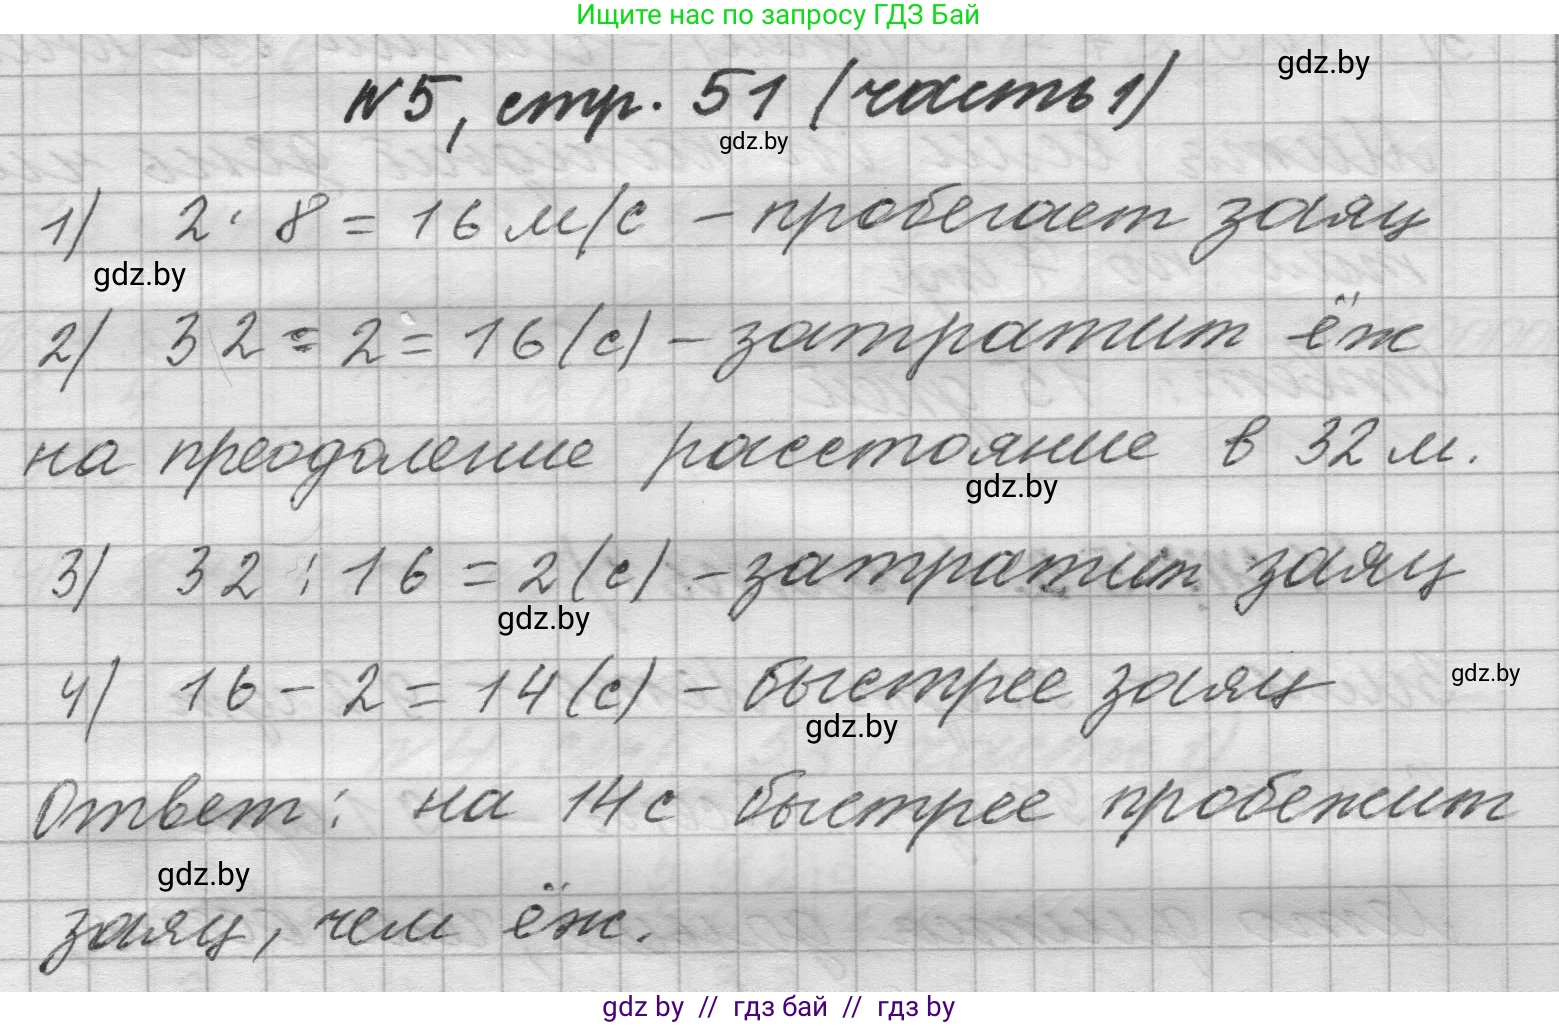 Ищите нас по запросу ГДЗ Бай
gdz.by
№5, стр. 51 (часть 1)
gdz.by
1) 2 · 8 = 16 м/с – пробегает заяц
gdz.by
2) 32 : 2 = 16 (с) – затратит ёж
на преодоление расстояние в 32 м.
gdz.by
3) 32 : 16 = 2 (с) – затратит заяц
gdz.by
4) 16 – 2 = 14 (с) – быстрее заяц
gdz.by
gdz.by
Ответ: на 14 с быстрее пробежит
gdz.by
заяц, чем ёж.
gdz by // гдз бай // гдз by